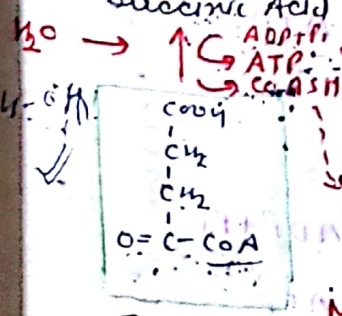 Succinic Acid
H₂O → ADP+Pi
ATP
CoASH
COOH
CH₂
CH₂
O=C-CoA